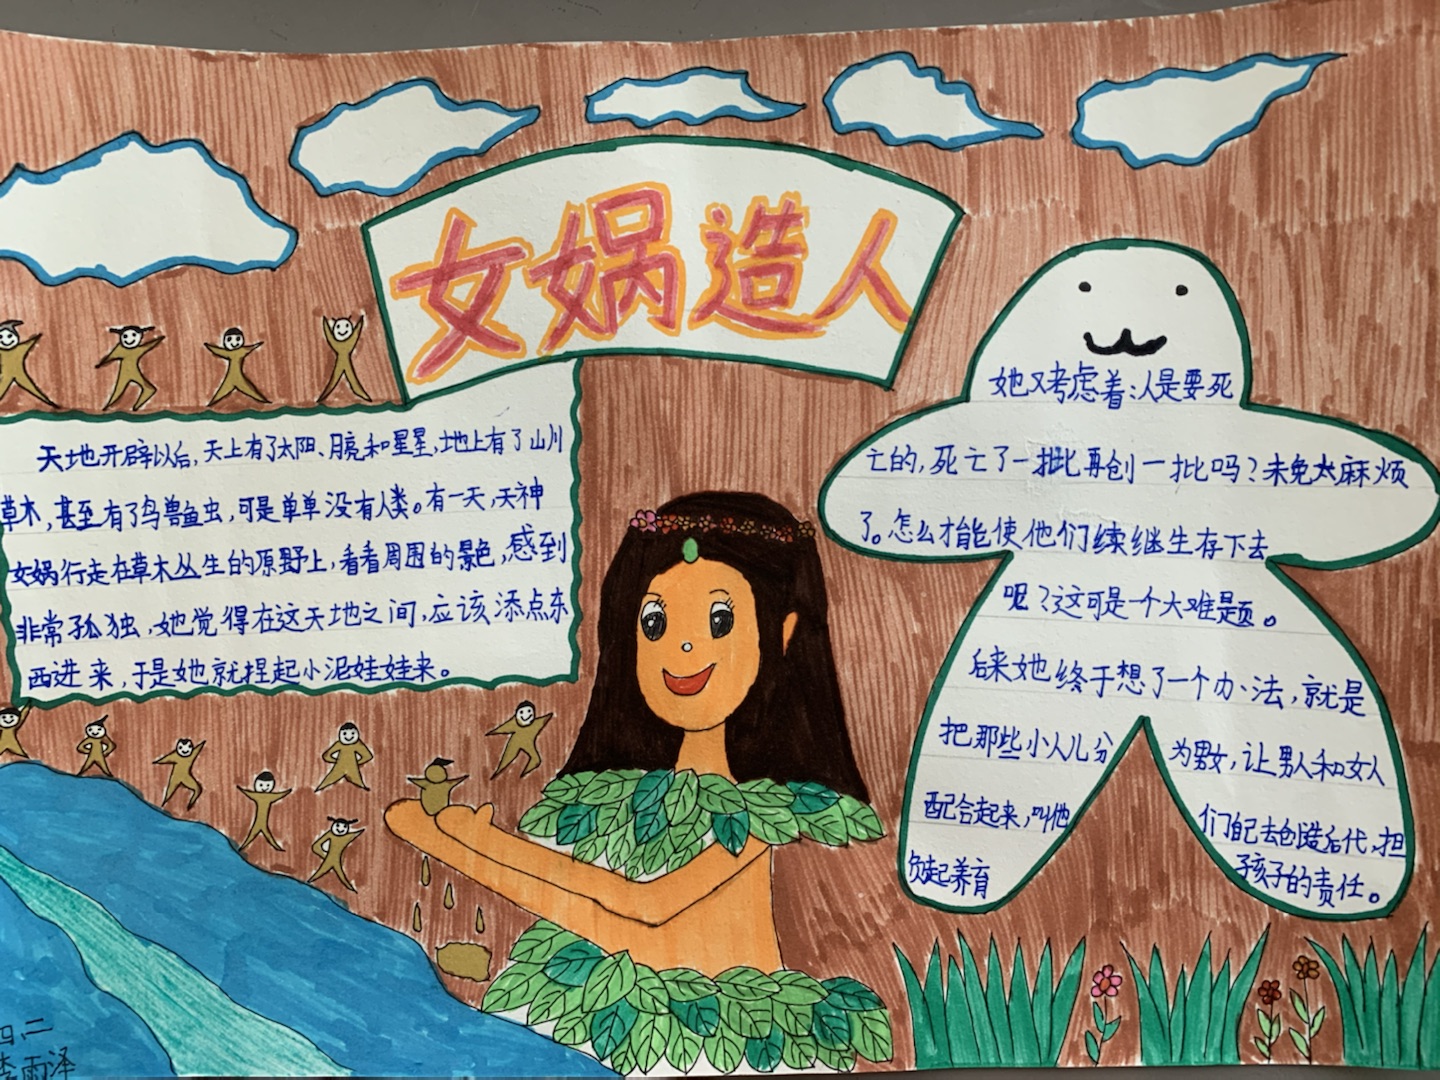 女娲造人
天地开辟以后,天上有了太阳、月亮和星星,地上有了山川
草木,甚至有了鸟兽鱼虫,可是单单没有人类。有一天,天神
女娲行走在草木丛生的原野上,看看周围的景色,感到
非常孤独,她觉得在这天地之间,应该添点东
西进来,于是她就捏起小泥娃娃来。
她又考虑着:人是要死
亡的,死亡了一批再创一批吗?未免太麻烦
了。怎么才能使他们续继生存下去
呢?这可是一个大难题。
后来她终于想了一个办法,就是
把那些小人儿分为男女,让男人和女人
配合起来,叫他们自己去创造后代,担
负起养育孩子的责任。
四、二
李雨泽